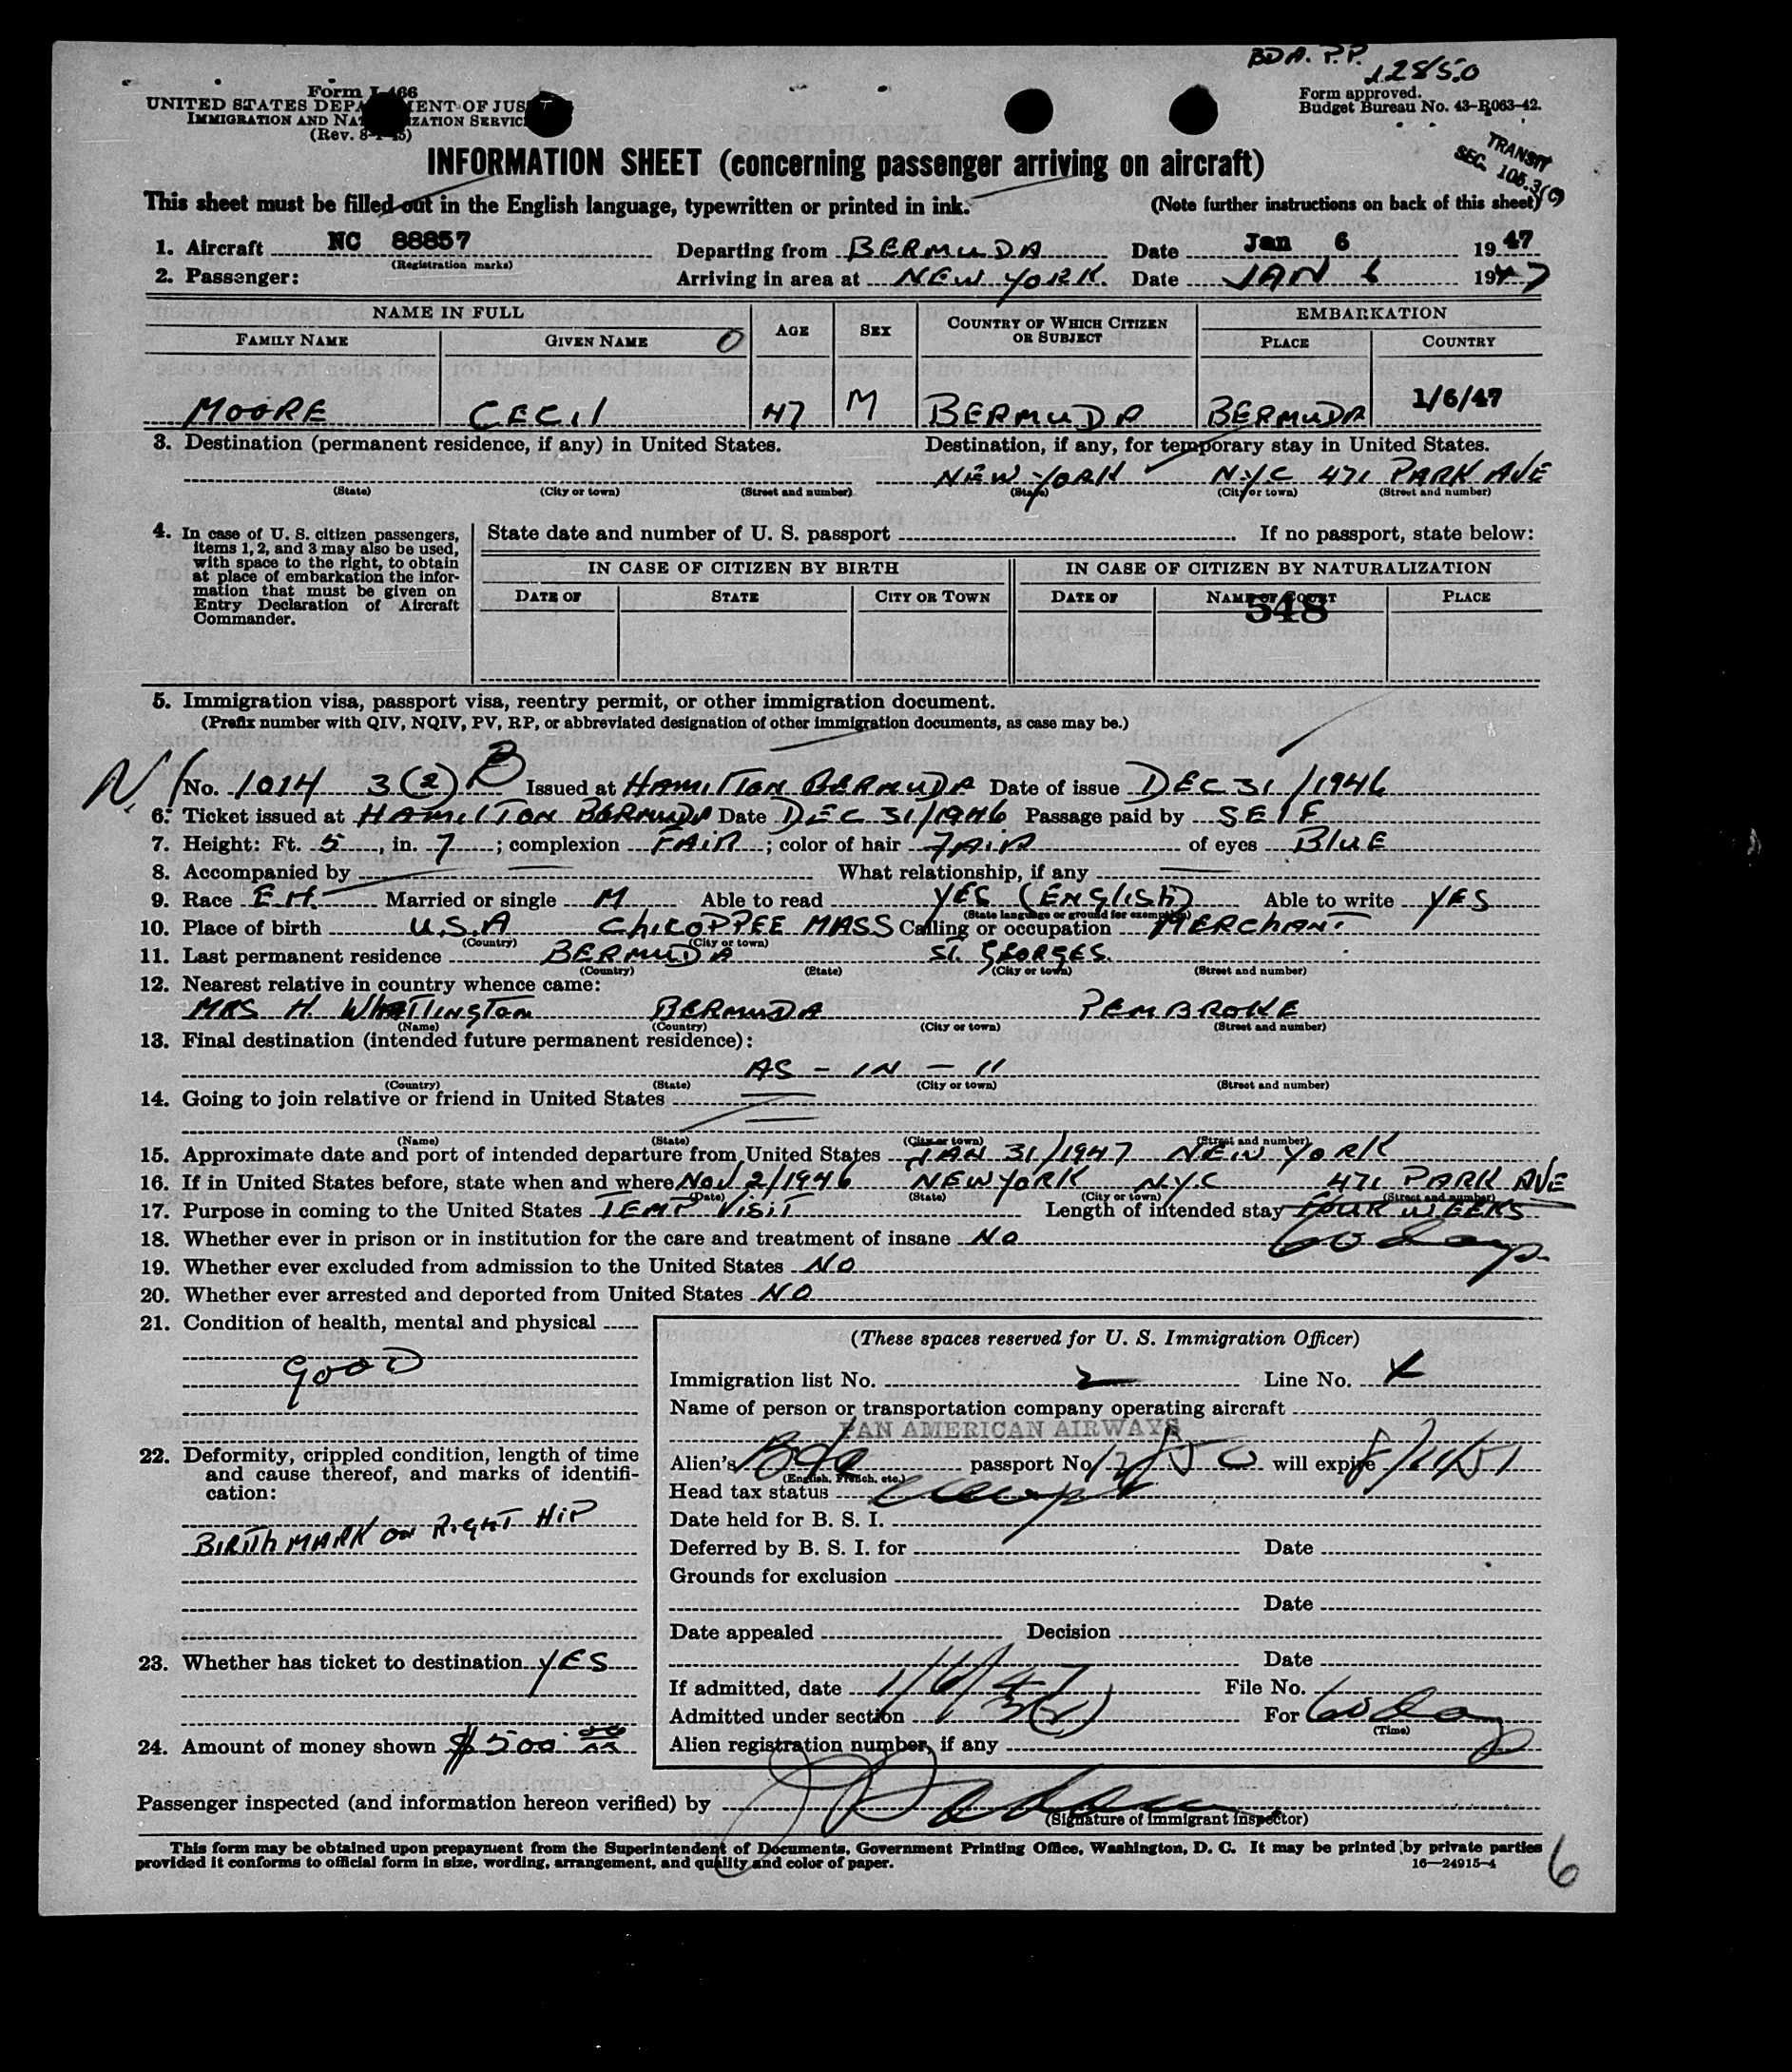 BDA. P.P.
12850
Form I-466
Form approved.
UNITED STATES DEPARTMENT OF JUSTICE
Budget Bureau No. 43-R063-42.
IMMIGRATION AND NATURALIZATION SERVICE
(Rev. 8-1-45)
TRANSIT
SEC. 105.3(c)
INFORMATION SHEET (concerning passenger arriving on aircraft)
This sheet must be filled out in the English language, typewritten or printed in ink. (Note further instructions on back of this sheet)
1. Aircraft NC 88857 Departing from BERMUDA Date Jan 6 1947
(Registration marks)
2. Passenger: Arriving in area at NEW YORK. Date JAN 6 1947
NAME IN FULL AGE SEX COUNTRY OF WHICH CITIZEN OR SUBJECT EMBARKATION
FAMILY NAME GIVEN NAME PLACE COUNTRY
MOORE CECIL 47 M BERMUDA BERMUDA 1/6/47
3. Destination (permanent residence, if any) in United States. Destination, if any, for temporary stay in United States.
NEW YORK N.Y.C 471 PARK AVE
(State) (City or town) (Street and number) (State) (City or town) (Street and number)
4. In case of U. S. citizen passengers, items 1, 2, and 3 may also be used, with space to the right, to obtain at place of embarkation the information that must be given on Entry Declaration of Aircraft Commander.
State date and number of U. S. passport If no passport, state below:
IN CASE OF CITIZEN BY BIRTH IN CASE OF CITIZEN BY NATURALIZATION
DATE OF STATE CITY OR TOWN DATE OF NAME OF COURT PLACE
548
5. Immigration visa, passport visa, reentry permit, or other immigration document.
(Prefix number with QIV, NQIV, PV, RP, or abbreviated designation of other immigration documents, as case may be.)
No. 1014 3(2) B Issued at HAMILTON BERMUDA Date of issue DEC 31/1946
6. Ticket issued at HAMILTON BERMUDA Date DEC 31/1946 Passage paid by SELF
7. Height: Ft. 5, in. 7; complexion FAIR; color of hair FAIR of eyes BLUE
8. Accompanied by What relationship, if any
9. Race E.H. Married or single M Able to read YES (ENGLISH) Able to write YES
(State language or ground for exemption)
10. Place of birth U.S.A CHICOPPEE MASS Calling or occupation MERCHANT
(Country) (City or town)
11. Last permanent residence BERMUDA ST. GEORGES.
(Country) (State) (City or town) (Street and number)
12. Nearest relative in country whence came:
MRS H. WHITTINGTON BERMUDA PEMBROKE
(Name) (Country) (City or town) (Street and number)
13. Final destination (intended future permanent residence):
AS - IN - 11
(Country) (State) (City or town) (Street and number)
14. Going to join relative or friend in United States
(Name) (State) (City or town) (Street and number)
15. Approximate date and port of intended departure from United States JAN 31/1947 NEW YORK
16. If in United States before, state when and where NOV 2/1946 NEW YORK N.Y.C 471 PARK AVE
(Date) (State) (City or town) (Street and number)
17. Purpose in coming to the United States TEMP VISIT Length of intended stay FOUR WEEKS
60 days
18. Whether ever in prison or in institution for the care and treatment of insane NO
19. Whether ever excluded from admission to the United States NO
20. Whether ever arrested and deported from United States NO
21. Condition of health, mental and physical
GOOD
22. Deformity, crippled condition, length of time and cause thereof, and marks of identification:
BIRTHMARK ON RIGHT HIP
23. Whether has ticket to destination YES
24. Amount of money shown $500 00/xx
(These spaces reserved for U. S. Immigration Officer)
Immigration list No. 2 Line No. 4
Name of person or transportation company operating aircraft
PAN AMERICAN AIRWAYS
Alien's Bda passport No 12850 will expire 8/11/51
(English, French, etc.)
Head tax status exempt
Date held for B. S. I.
Deferred by B. S. I. for Date
Grounds for exclusion
Date
Date appealed Decision
Date
If admitted, date 1/6/47 File No.
Admitted under section 3(2) For 60 days
(Time)
Alien registration number, if any
Passenger inspected (and information hereon verified) by
(Signature of immigrant inspector)
This form may be obtained upon prepayment from the Superintendent of Documents, Government Printing Office, Washington, D. C. It may be printed by private parties
provided it conforms to official form in size, wording, arrangement, and quality and color of paper. 16—24915-4
6